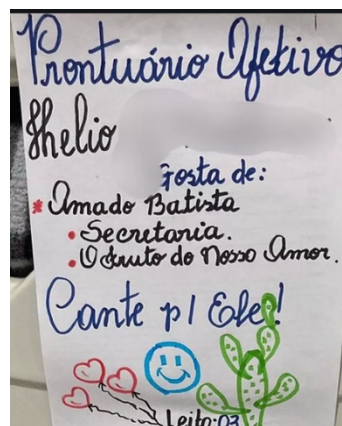 Prontuário Afetivo
Shelio
Gosta de:
* Amado Batista
• Secretaria.
• O fruto do Nosso Amor.
Cante p/ Ele!
Leito:03